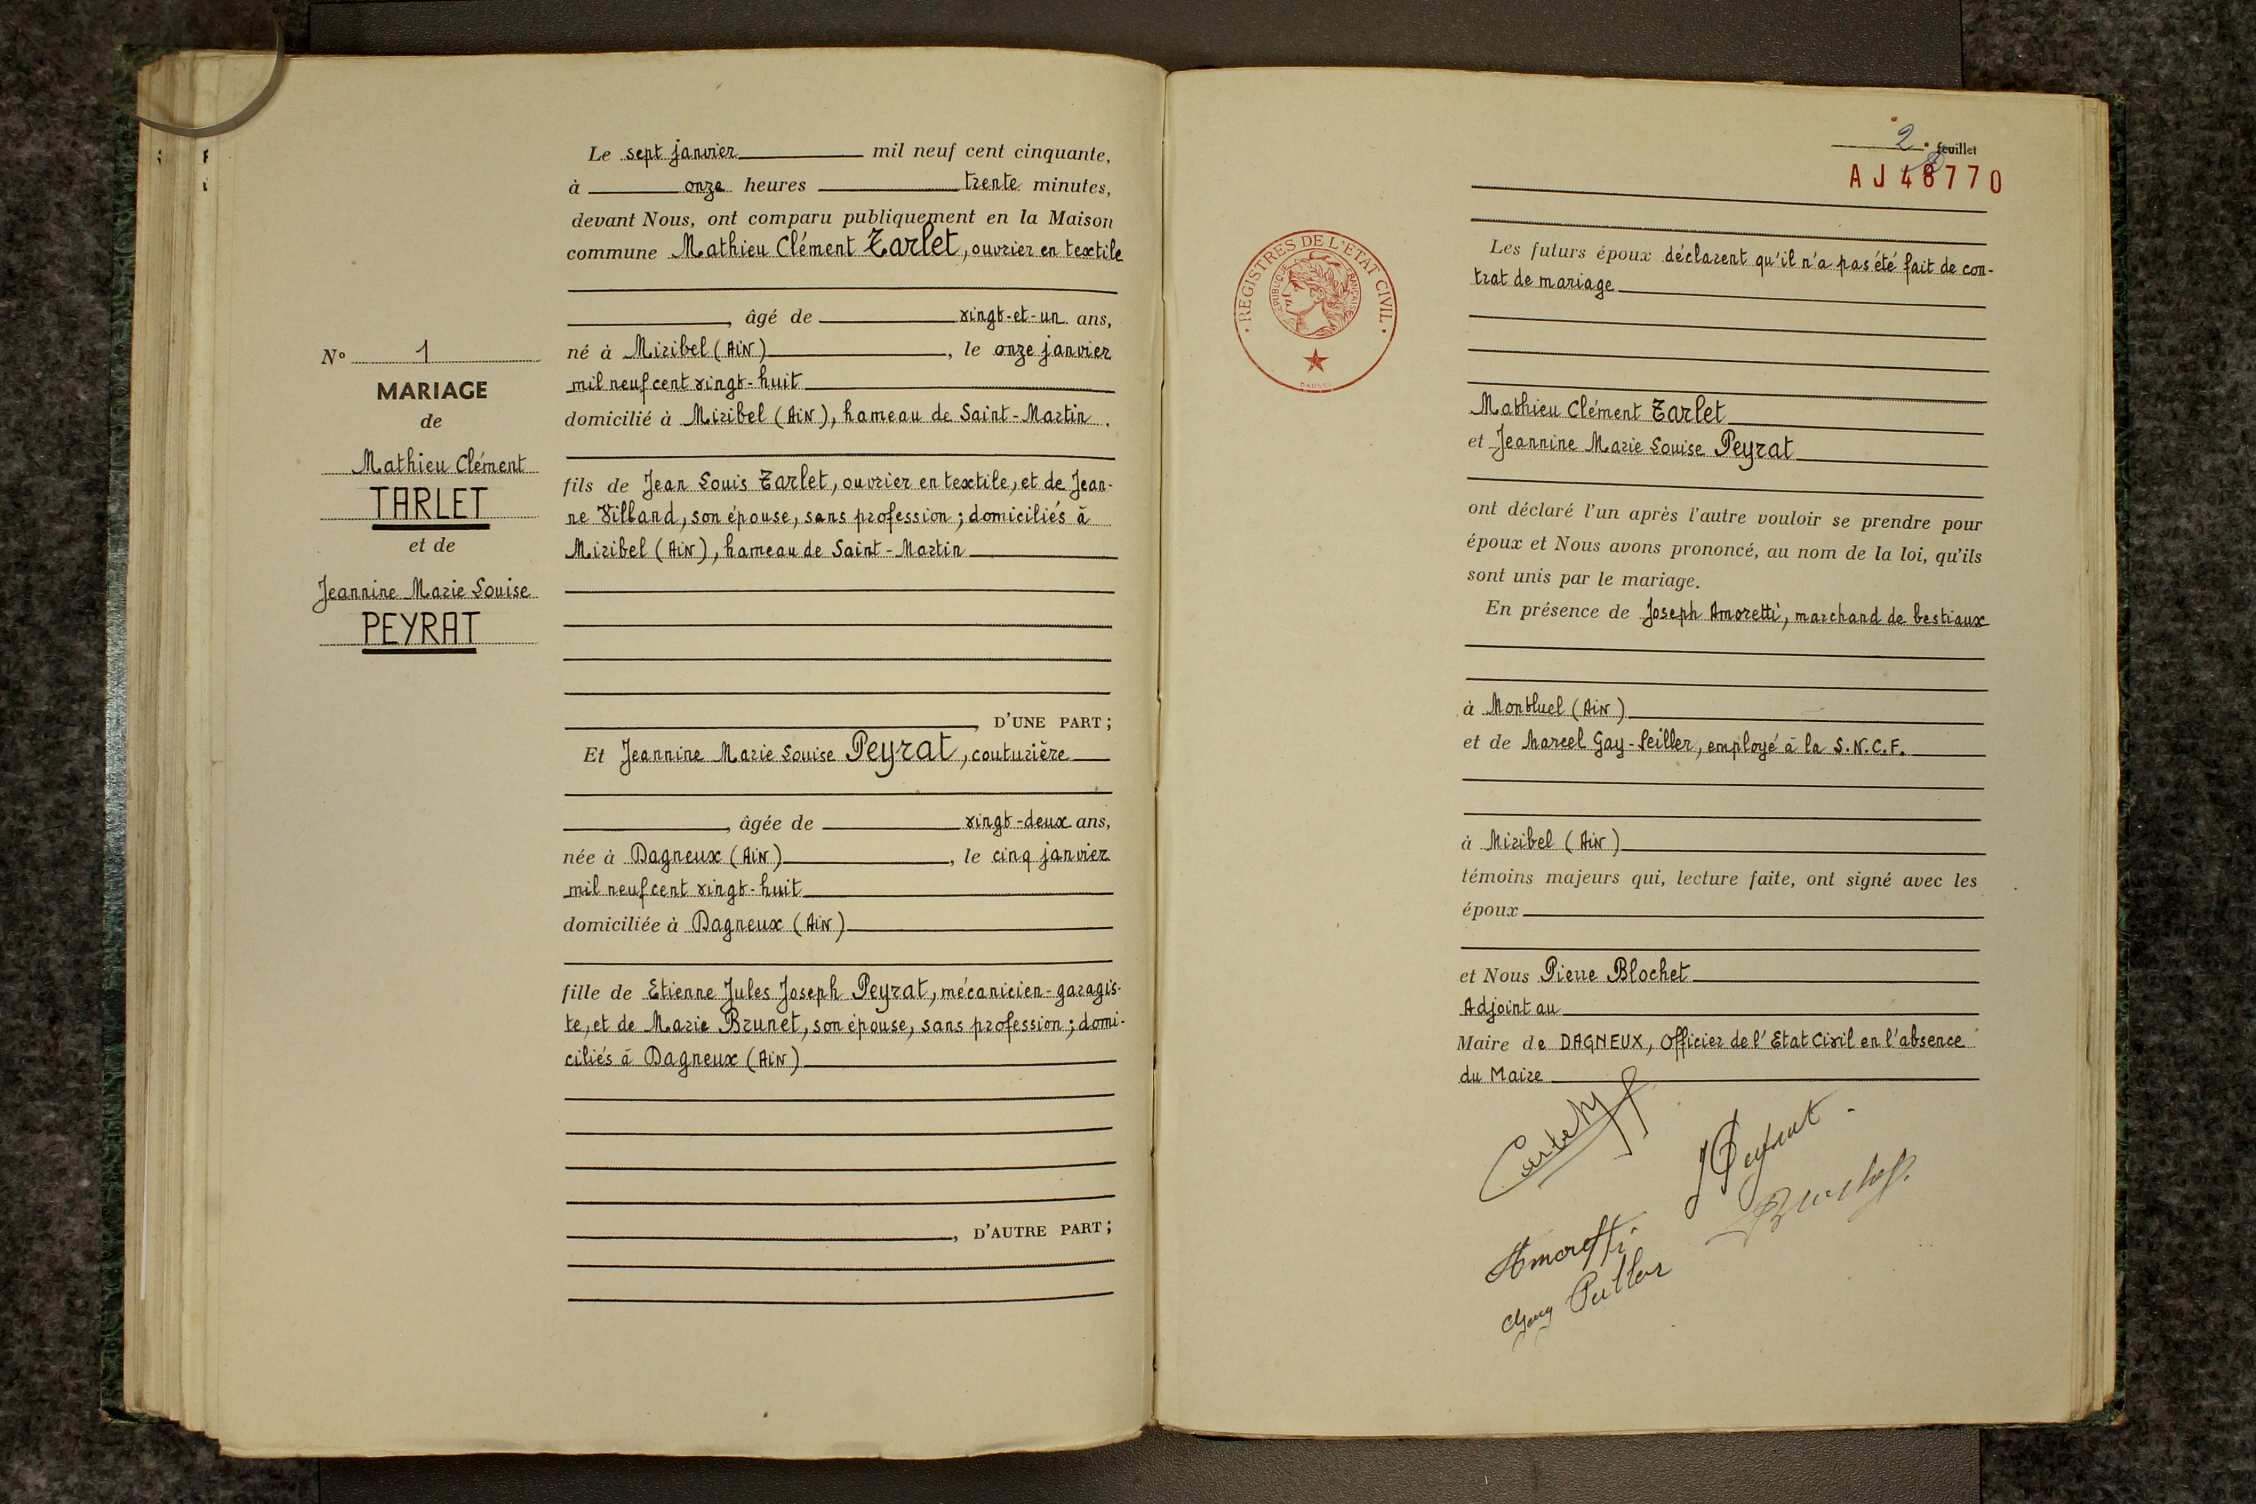 Le sept janvier mil neuf cent cinquante,
à onze heures trente minutes,
devant Nous, ont comparu publiquement en la Maison
commune Mathieu Clément Tarlet, ouvrier en textile
, âgé de vingt-et-un ans,
né à Miribel (AIN), le onze janvier
mil neuf cent vingt-huit
domicilié à Miribel (AIN), hameau de Saint-Martin.
fils de Jean Louis Tarlet, ouvrier en textile, et de Jean-
ne Villand, son épouse, sans profession ; domiciliés à
Miribel (AIN), hameau de Saint-Martin
, D'UNE PART ;
Et Jeannine Marie Louise Peyrat, couturière
, âgée de vingt-deux ans,
née à Dagneux (AIN), le cinq janvier
mil neuf cent vingt-huit
domiciliée à Dagneux (AIN)
fille de Etienne Jules Joseph Peyrat, mécanicien-garagis-
te, et de Marie Brunet, son épouse, sans profession ; domi-
ciliés à Dagneux (AIN)
, D'AUTRE PART ;
N° 1
MARIAGE
de
Mathieu Clément
TARLET
et de
Jeannine Marie Louise
PEYRAT
2e feuillet
AJ 48770
REGISTRES DE L'ETAT CIVIL
REPUBLIQUE FRANCAISE
Les futurs époux déclarent qu'il n'a pas été fait de con-
trat de mariage
Mathieu Clément Tarlet
et Jeannine Marie Louise Peyrat
ont déclaré l'un après l'autre vouloir se prendre pour
époux et Nous avons prononcé, au nom de la loi, qu'ils
sont unis par le mariage.
En présence de Joseph Amoretti, marchand de bestiaux
à Montluel (AIN)
et de Marcel Gay-Peiller, employé à la S.N.C.F.
à Miribel (AIN)
témoins majeurs qui, lecture faite, ont signé avec les
époux
et Nous Pierre Blochet
Adjoint au
Maire de DAGNEUX, Officier de l'Etat Civil en l'absence
du Maire
JPeyrat
Amoretti